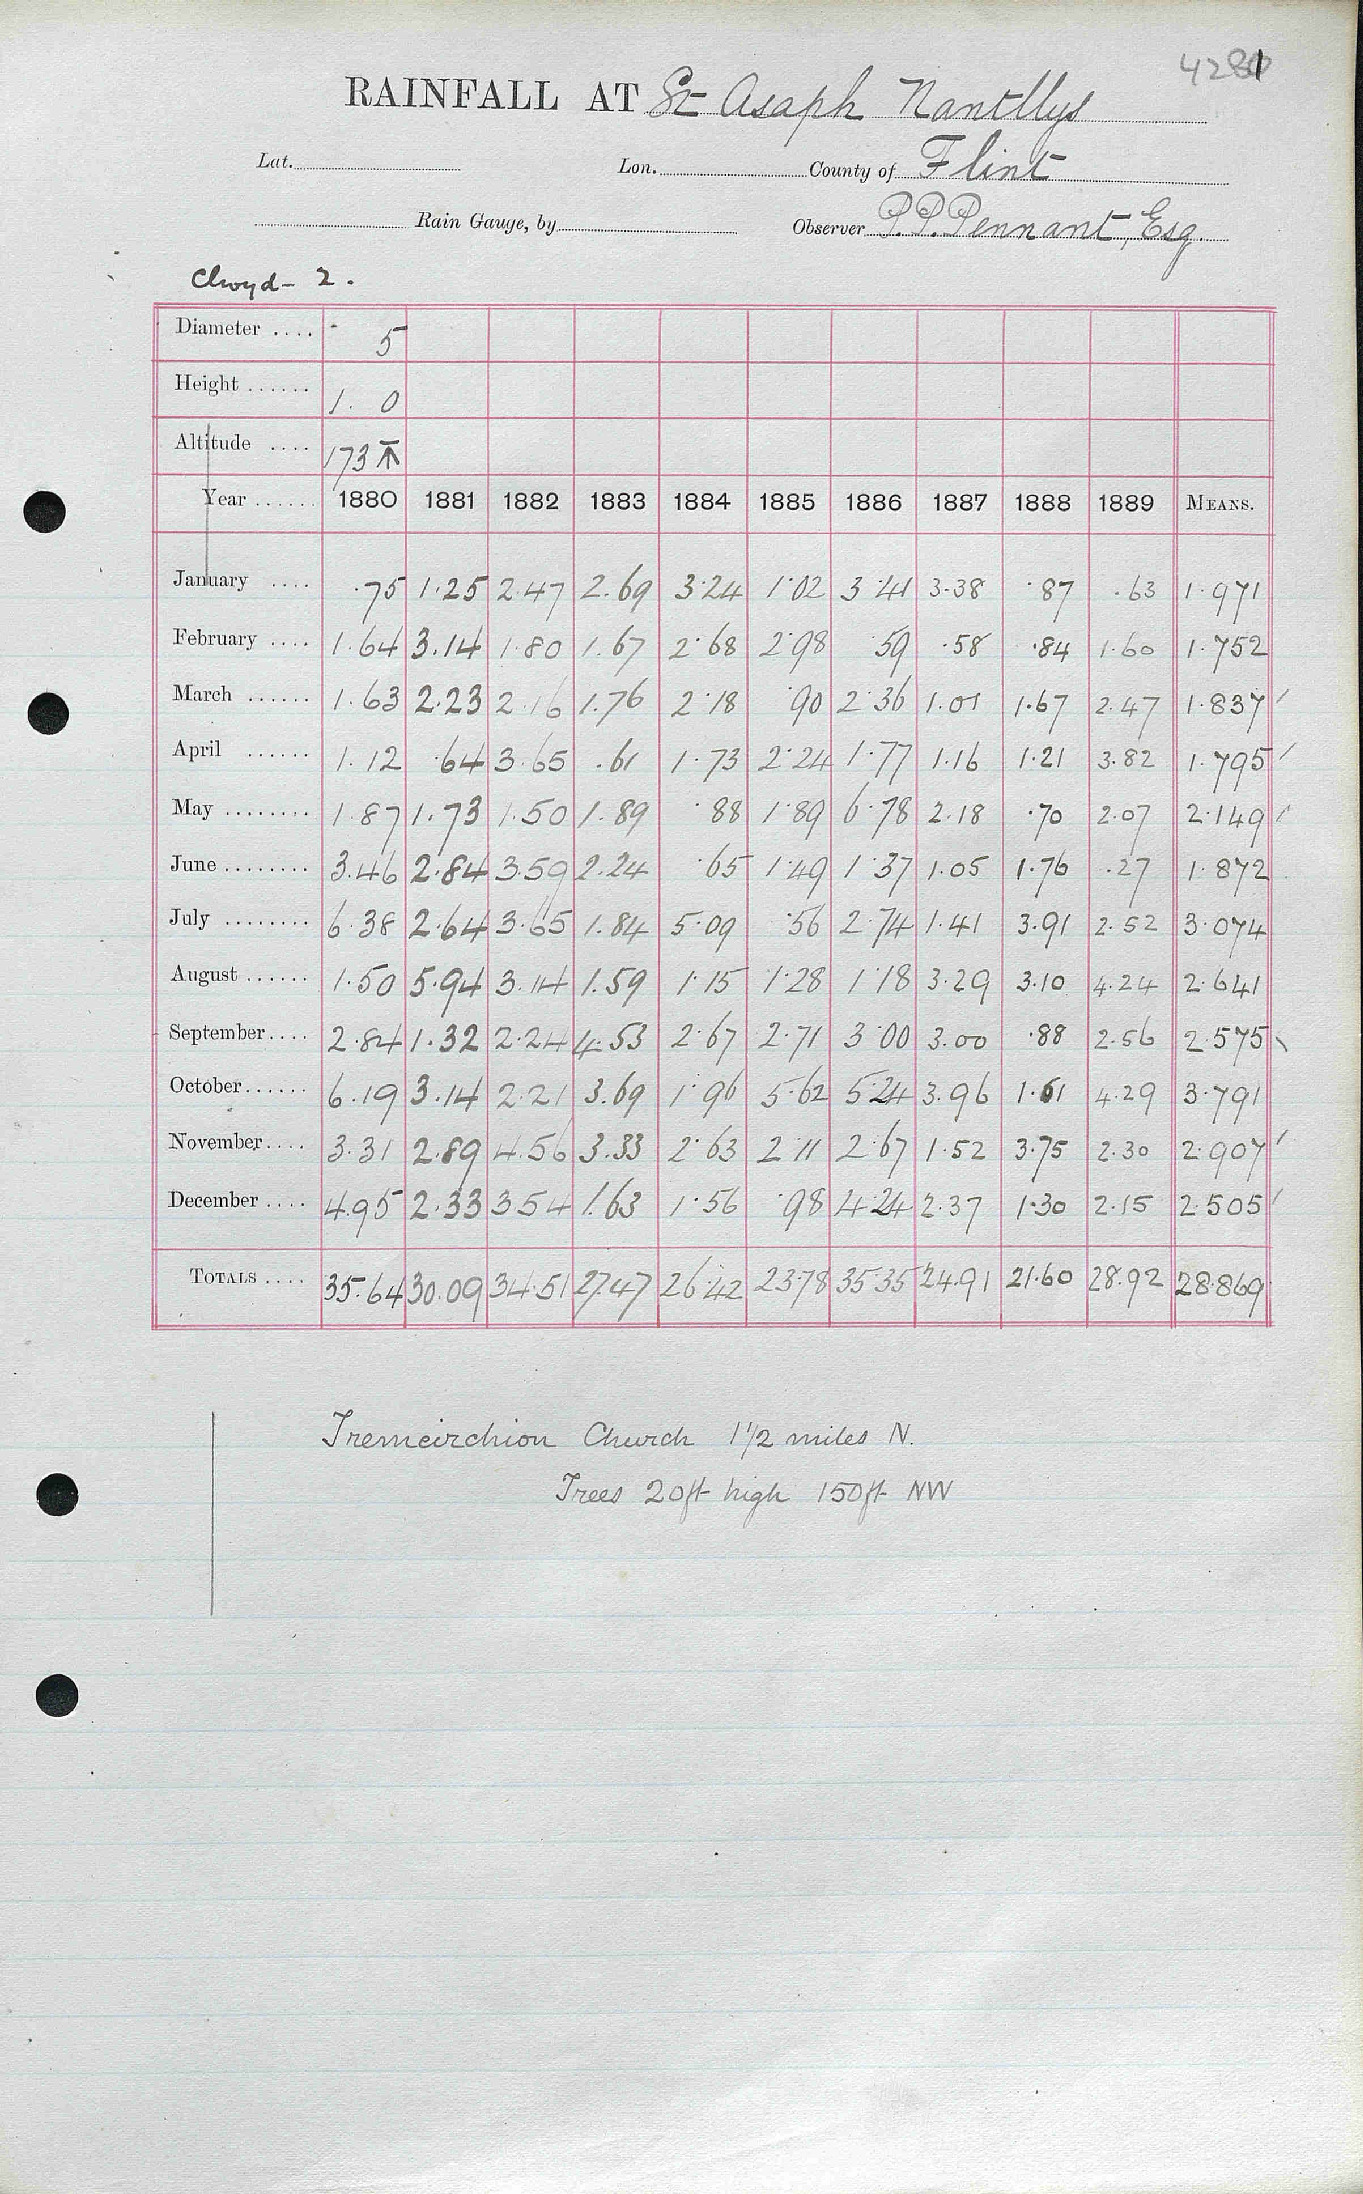 RAINFALL AT St Asaph Nantllys
Lat. Lon. County of Flint
Rain Gauge, by Observer P. P. Pennant, Esq.
Clwyd - 2.
Diameter .... 5
Height ...... 1. 0
Altitude .... 173
Year ...... 1880 1881 1882 1883 1884 1885 1886 1887 1888 1889 MEANS.
January .... .75 1.25 2.47 2.69 3.24 1.02 3.41 3.38 .87 .63 1.971
February .... 1.64 3.14 1.80 1.67 2.68 2.98 .59 .58 .84 1.60 1.752
March ...... 1.63 2.23 2.16 1.76 2.18 .90 2.36 1.01 1.67 2.47 1.837
April ...... 1.12 .64 3.65 .61 1.73 2.24 1.77 1.16 1.21 3.82 1.795
May ........ 1.87 1.73 1.50 1.89 .88 1.89 6.78 2.18 .70 2.07 2.149
June ........ 3.46 2.84 3.59 2.24 .65 1.49 1.37 1.05 1.76 .27 1.872
July ........ 6.38 2.64 3.65 1.84 5.09 .56 2.74 1.41 3.91 2.52 3.074
August ...... 1.50 5.94 3.14 1.59 1.15 1.28 1.18 3.29 3.10 4.24 2.641
September.... 2.84 1.32 2.24 4.53 2.67 2.71 3.00 3.00 .88 2.56 2.575
October...... 6.19 3.14 2.21 3.69 1.96 5.62 5.24 3.96 1.61 4.29 3.791
November.... 3.31 2.89 4.56 3.33 2.63 2.11 2.67 1.52 3.75 2.30 2.907
December .... 4.95 2.33 3.54 1.63 1.56 .98 4.24 2.37 1.30 2.15 2.505
TOTALS .... 35.64 30.09 34.51 27.47 26.42 23.78 35.35 24.91 21.60 28.92 28.869
Tremeirchion Church 1 1/2 miles N.
Trees 20ft high 150ft NW